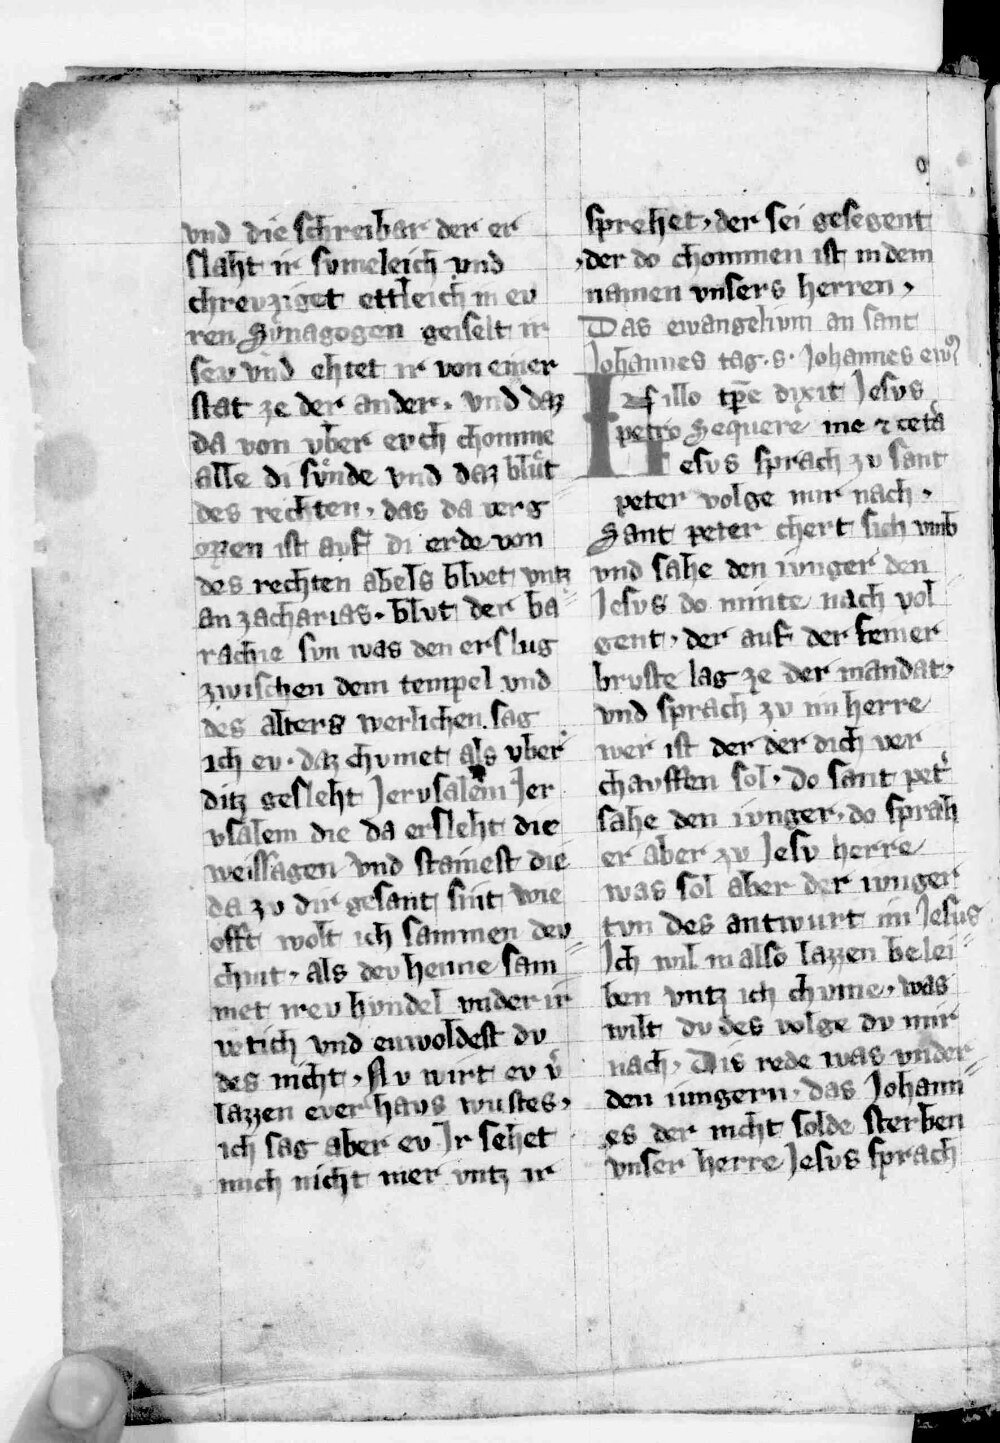 vnd die schreibar der er
slaht ir svmeleich vnd
chrevziget ettleich in ev
ren Synagogen geiselt ir
sev vnd ehtet ir von einer
stat ze der ander. vnd daz
da von vber evch chomme
alle di svͤnde vnd daz blvͤt
des rechten. das da verg
ozzen ist avf di erde von
des rechten abels blvet vntz
an zacharias. blvt der ba
rachie svn was den erslug
zwischen dem tempel vnd
des alters werlichen sag
ich ev. daz chvmet als vber
ditz gesleht Jervsalem Jer
vsalem die da ersleht die
weissagen vnd stainest die
da zv dir gesant sint wie
offt wolt ich sammen dev
chint. als dev henne sam
met irev hvndel vnder ir
vetich vnd enwoldest dv
des nicht. Nv wirt ev v̊
lazzen ever havs wustes.
ich sag aber ev Jr sehet
mich nicht mer vntz ir
sprehet. der sei gesegent
.der do chommen ist in dem
namen vnsers herren.
Das ewangelivm an sant
Johannes tag. s. Johannes
In illo tp̄e dixit Jesvs
petro Sequere me ⁊ cetã
Jesvs sprach zv sant
peter volge mir nach.
Sant peter chert sich vmb
vnd sahe den ivnger den
Jesvs do minte nach vol
gent. der auf der seiner
brvste lag ze der mandat.
vnd sprach zv im herre
wer ist der der dich ver
chavffen sol. do sant pet͛
sahe den ivnger. do sprah
er aber zv Jesv herre
was sol aber der ivnger
tvn des antwurt im Jesus
Ich wil in also lazzen belei
ben vntz ich chvme. was
wilt dv des volge dv mir
nach. Dis rede was vnder
den iungern. das Johann
es der nicht solde sterben
vnser herre Jesvs sprach